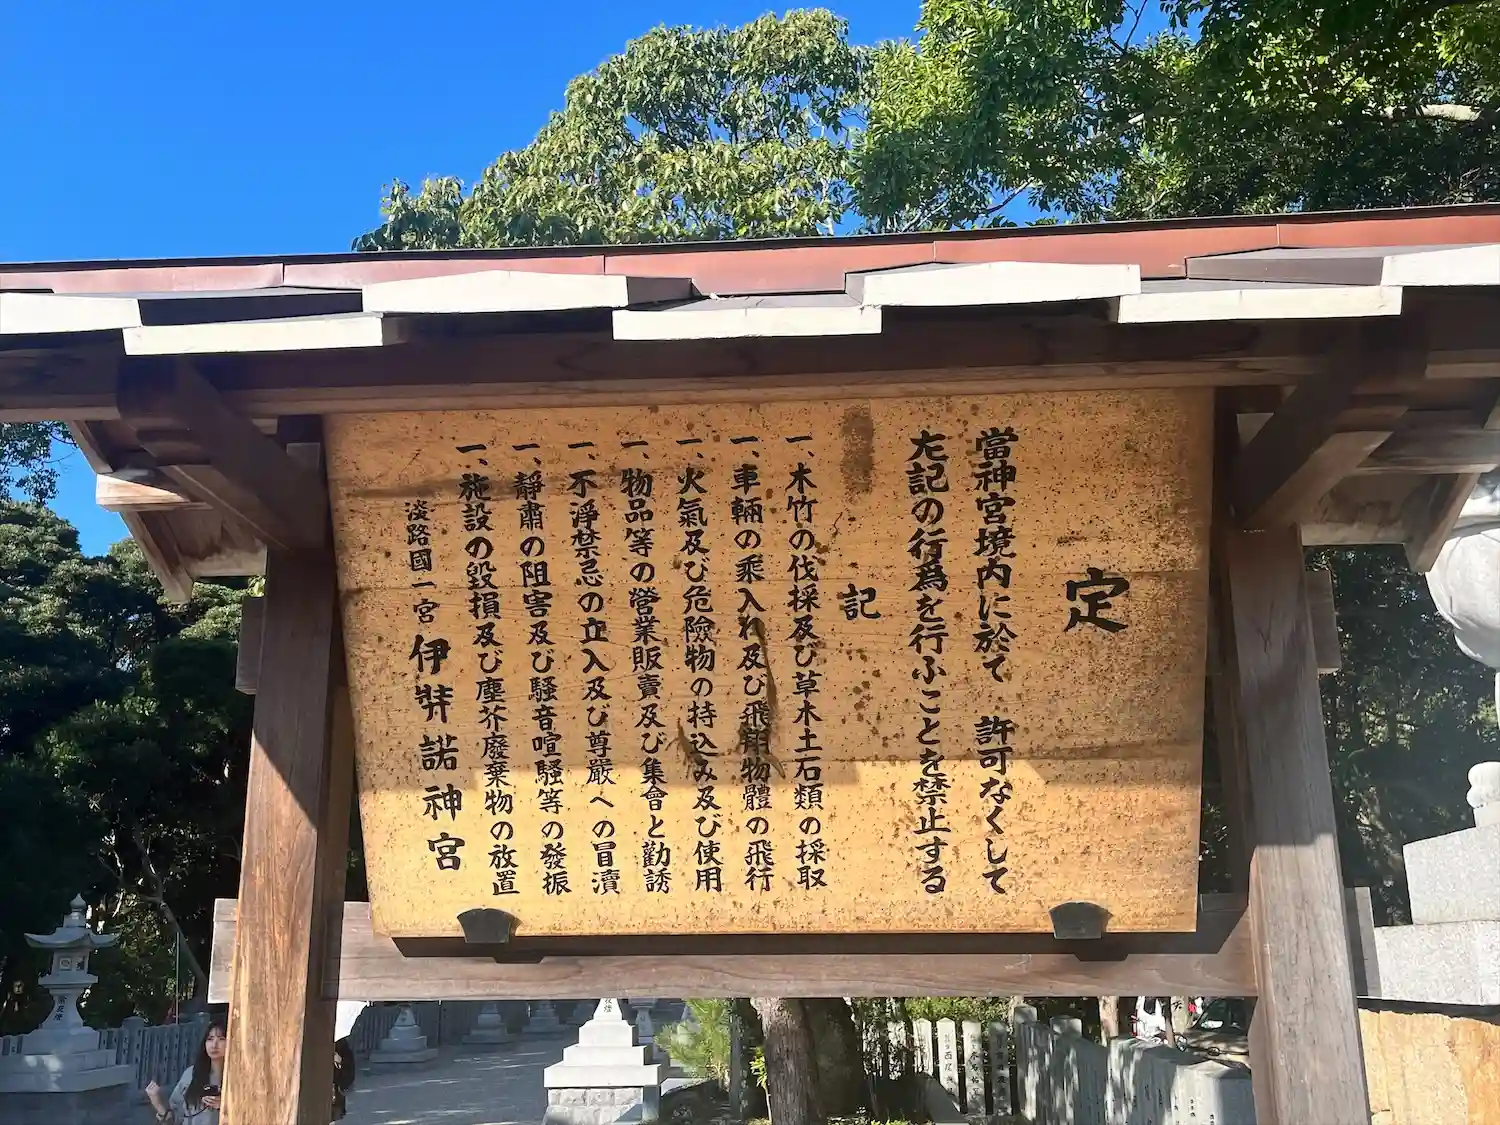 定
當神宮境内に於て 許可なくして
左記の行爲を行ふことを禁止する
記
一、木竹の伐採及び草木土石類の採取
一、車輛の乘入れ及び飛翔物體の飛行
一、火氣及び危險物の持込み及び使用
一、物品等の營業販賣及び集會と勸誘
一、不淨禁忌の立入及び尊厳への冒瀆
一、靜肅の阻害及び騒音喧騒等の發振
一、施設の毀損及び塵芥廢棄物の放置
淡路國一宮 伊弉諾神宮